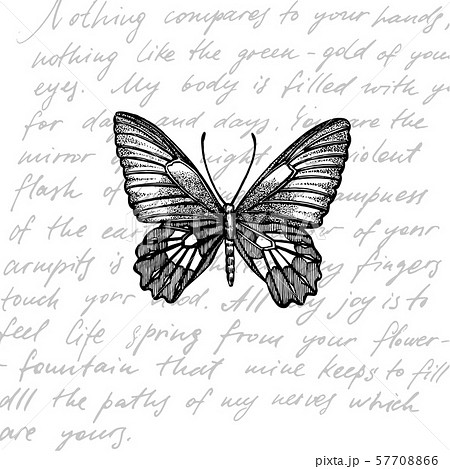 Nothing compares to your hands,
nothing like the green-gold of your
eyes. My body is filled with y
for days and days. You are the
mirror night violent
flash of dampness
of the ea of your
armpits is my fingers
touch your blood. All my joy is to
feel life spring from your flower-
- fountain that mine keeps to fill
all the paths of my nerves which
are yours.
57708866